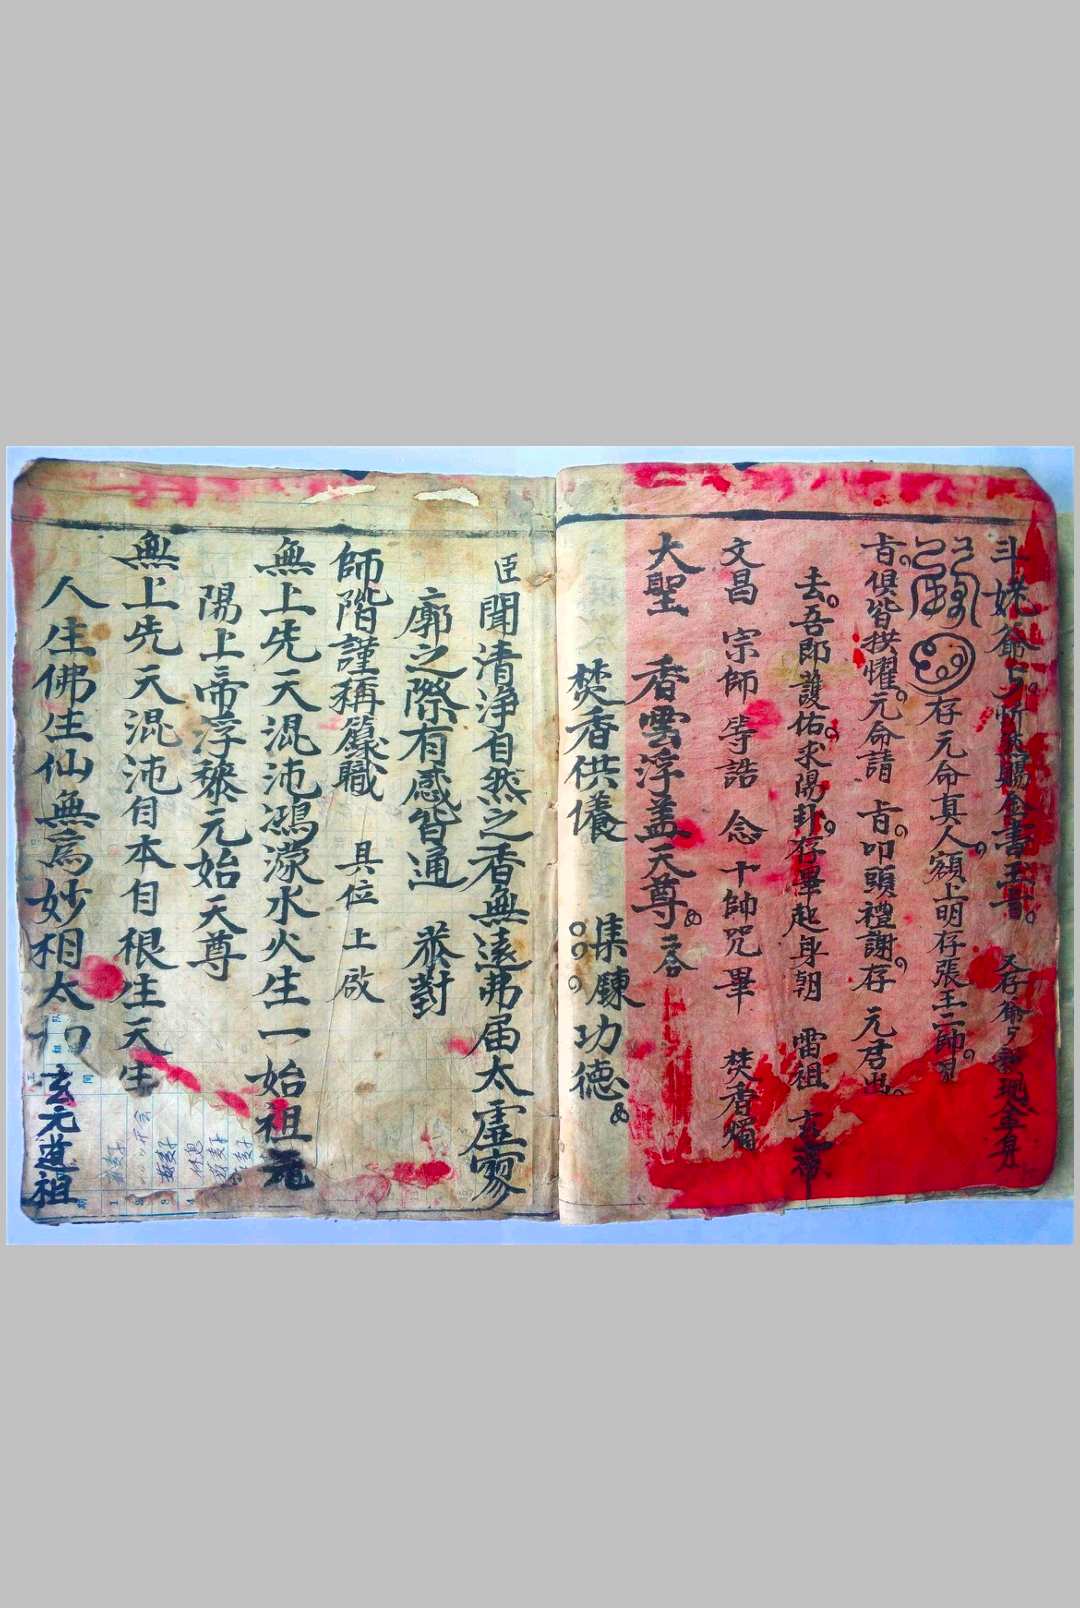 斗姥爺〻 賜 書玉音。又存爺〻 現金身
存元命真人。額上明存張王二帥。
旨俱皆拱懼。元命請 旨。叩頭禮謝。存 元君出。
去。吾即護佑。求陽卦。存畢起身朝 雷祖 玄帝
文昌 宗師 等誥 念十帥咒畢 焚香燭
大聖 香雲浮盖天尊。
焚香供養 集鍊功德
臣聞清淨自然之香無遠弗届太虛寥
廓之際有感皆通 恭對
師階謹稱籙職 具位上啟
無上先天混沌鴻濛水火生一始祖元
陽上帝浮黎元始天尊
無上先天混沌自本自根生天生
人生佛生仙無為妙相太 玄元道祖